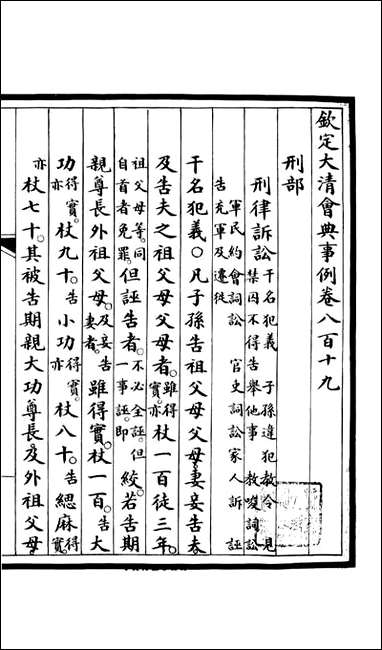 欽定大清會典事例卷八百十九
刑部
刑律訴訟 干名犯義 子孫違犯教令 見
禁囚不得告舉他事 教唆詞訟
軍民約會詞訟 官吏詞訟家人訴 誣
告充軍及遷徙
干名犯義○凡子孫告祖父母父母。妻妾告夫。
及告夫之祖父母父母者。雖得實。亦杖一百徒三年。
祖父母等。同自首者免罪。但誣告者。不必全誣。但一事誣。即絞。若告期
親尊長外祖父母。及妾告妻者。雖得實。杖一百。告大
功。得實。亦杖九十。告小功。得實。亦杖八十。告緦麻。得實。
亦杖七十。其被告期親大功尊長。及外祖父母。